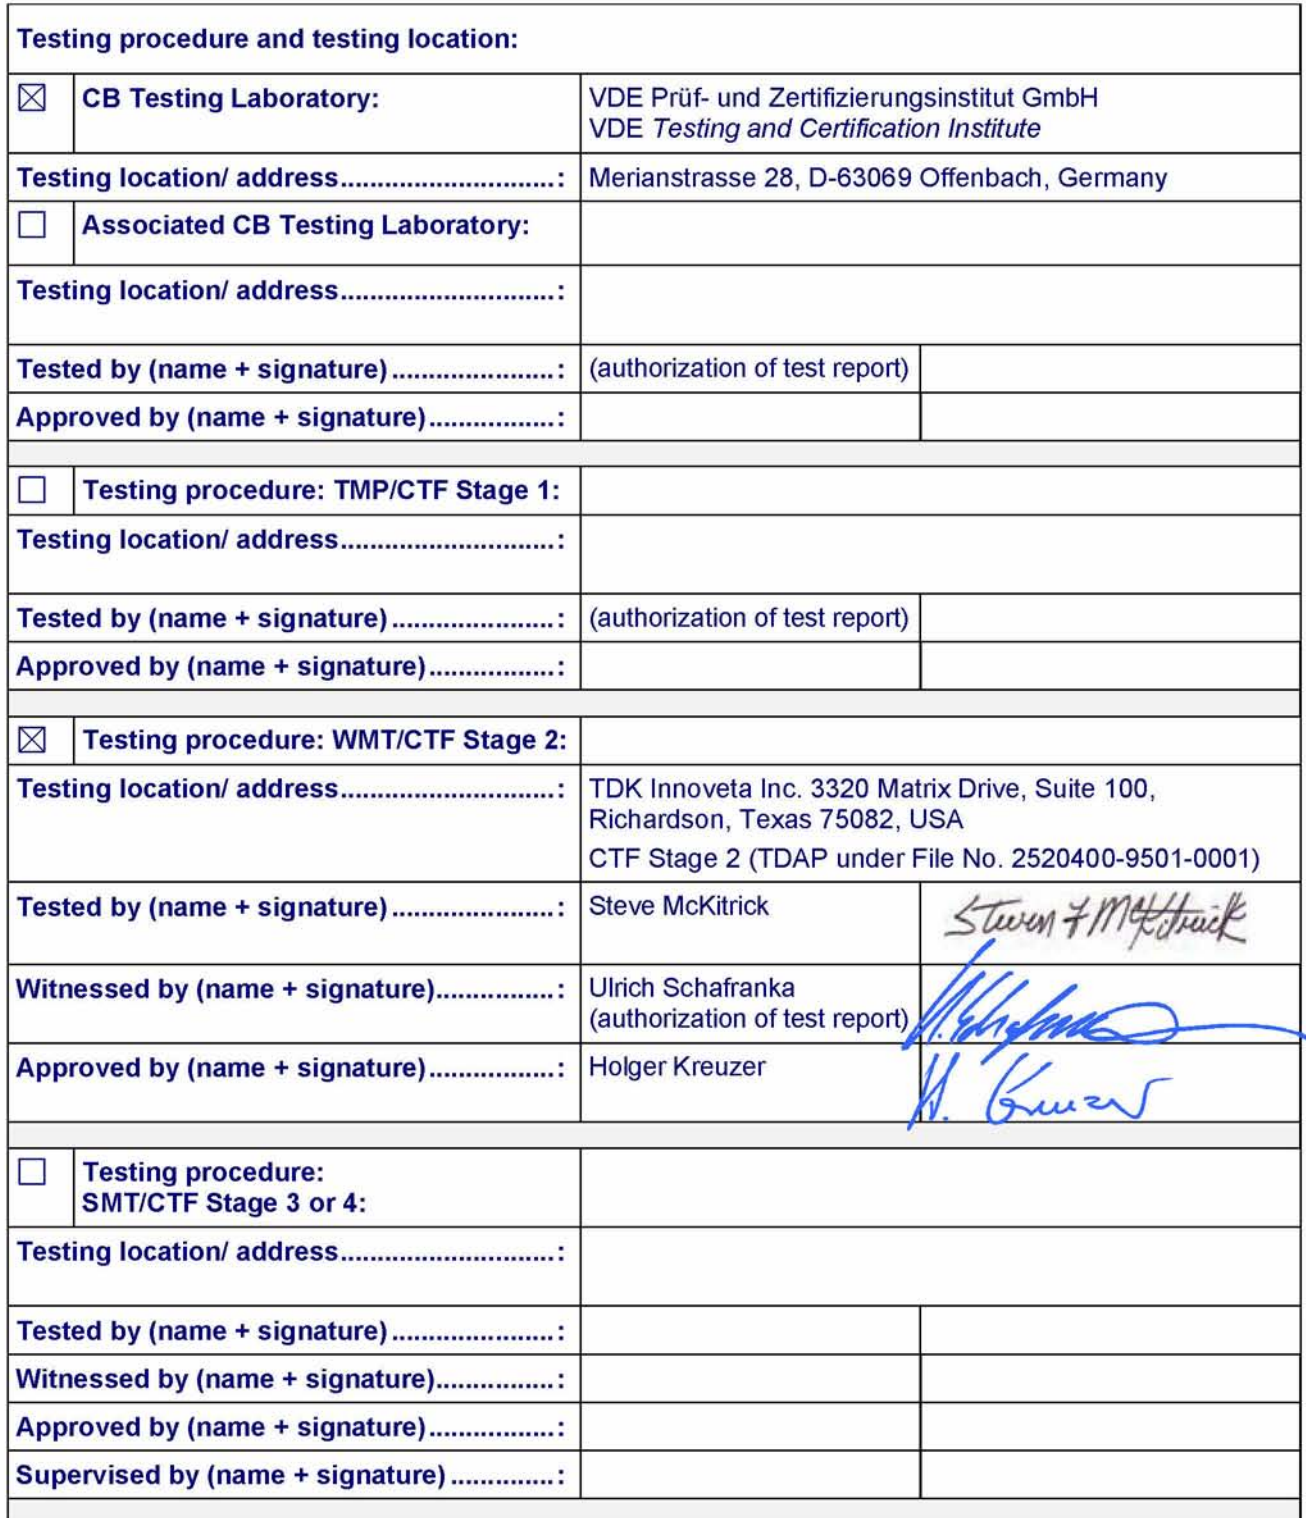 Testing procedure and testing location:
☒ CB Testing Laboratory: VDE Prüf- und Zertifizierungsinstitut GmbH
VDE Testing and Certification Institute
Testing location/ address.............................: Merianstrasse 28, D-63069 Offenbach, Germany
☐ Associated CB Testing Laboratory:
Testing location/ address.............................:
Tested by (name + signature) ......................: (authorization of test report)
Approved by (name + signature).................:
☐ Testing procedure: TMP/CTF Stage 1:
Testing location/ address.............................:
Tested by (name + signature) ......................: (authorization of test report)
Approved by (name + signature).................:
☒ Testing procedure: WMT/CTF Stage 2:
Testing location/ address.............................: TDK Innoveta Inc. 3320 Matrix Drive, Suite 100,
Richardson, Texas 75082, USA
CTF Stage 2 (TDAP under File No. 2520400-9501-0001)
Tested by (name + signature) ......................: Steve McKitrick Steven F McKitrick
Witnessed by (name + signature)................: Ulrich Schafranka
(authorization of test report)
Approved by (name + signature).................: Holger Kreuzer H. Kreuzer
☐ Testing procedure:
SMT/CTF Stage 3 or 4:
Testing location/ address.............................:
Tested by (name + signature) ......................:
Witnessed by (name + signature)................:
Approved by (name + signature).................:
Supervised by (name + signature) ..............: